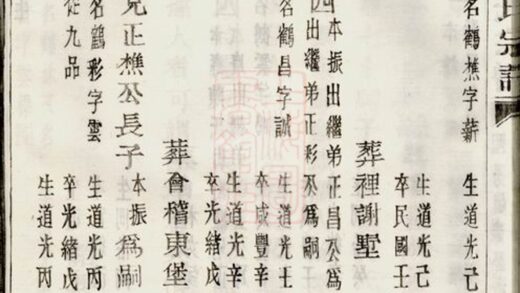 氏宗譜
名鶴樵字薪
生道光己
生道光己
卒民國壬
葬裡謝墅
四本振出繼弟正昌公為
四出繼弟正彩公為嗣
名鶴昌字誠
生道光壬
卒咸豐辛
生道光辛
卒光緒戊
葬會稽東堡
兄正樵公長子
本振為嗣
名鶴彩字雲
從九品
生道光丙
卒光緒戊
生道光丙